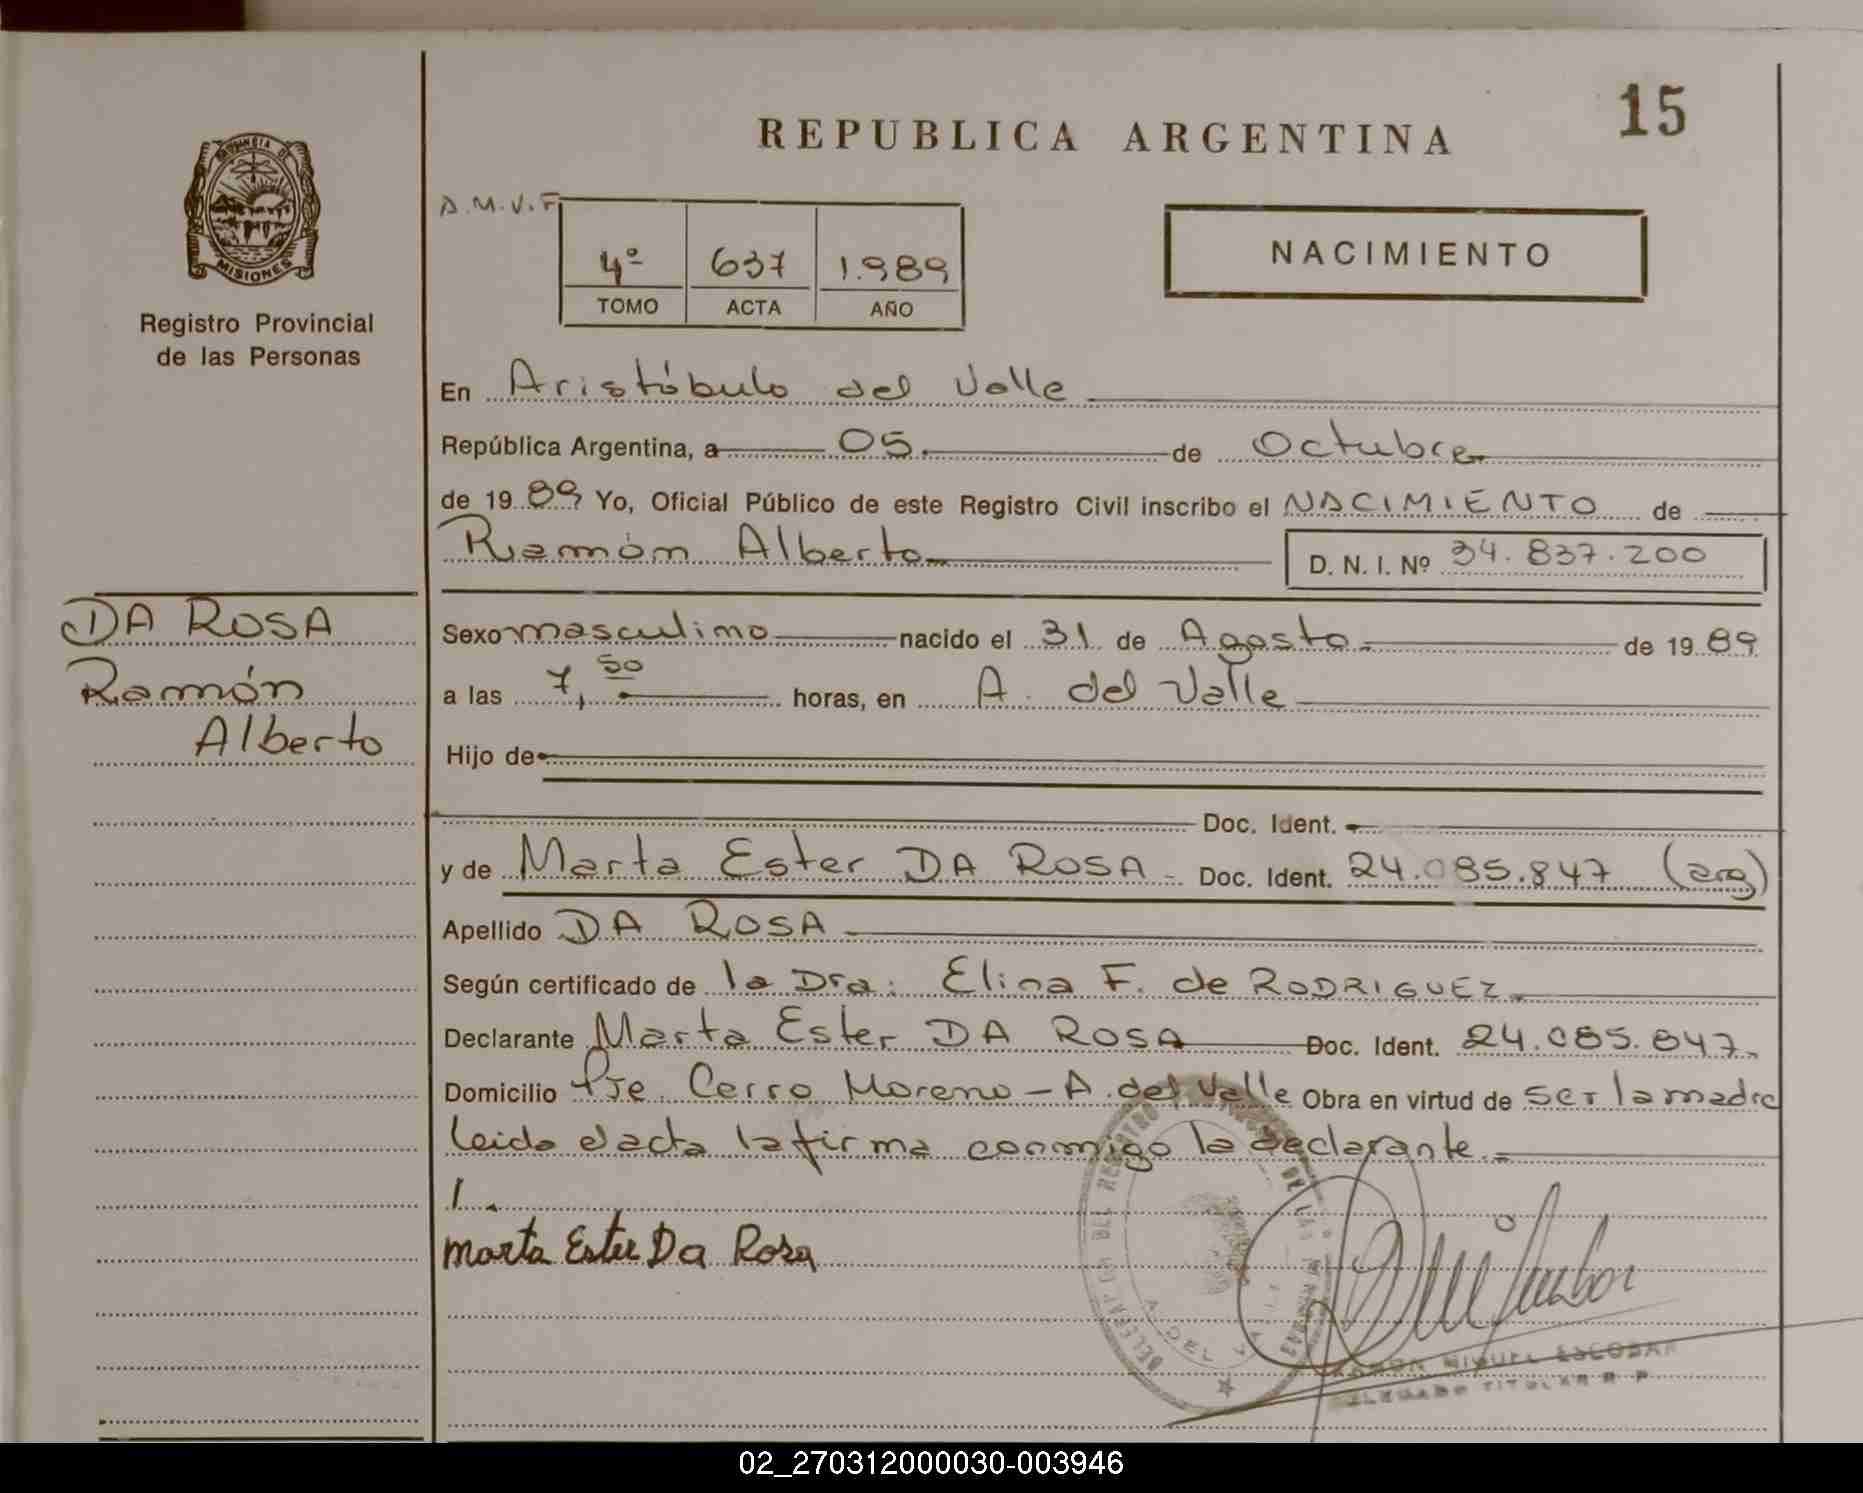 REPUBLICA ARGENTINA
15
PROVINCIA DE
MISIONES
Registro Provincial
de las Personas
A.M.V.F
4º 637 1.989
TOMO ACTA AÑO
NACIMIENTO
En Aristóbulo del Valle
República Argentina, a 05. de Octubre
de 1989 Yo, Oficial Público de este Registro Civil inscribo el NACIMIENTO de
Ramón Alberto
D. N. I. Nº 34.837.200
DA ROSA
Ramón
Alberto
Sexo masculino nacido el 31 de Agosto. de 1989
a las 7,50 horas, en A. del Valle
Hijo de
Doc. Ident.
y de Marta Ester DA ROSA - Doc. Ident. 24.085.847 (arg)
Apellido DA ROSA
Según certificado de la Dra: Elina F. de RODRIGUEZ
Declarante Marta Ester DA ROSA Doc. Ident. 24.085.847.
Domicilio Pje. Cerro Moreno - A. del Valle Obra en virtud de ser la madre
leida el acta la firma conmigo la declarante.=
Marta Ester Da Rosa
RAMON MIGUEL ESCOBAR
DELEGADO TITULAR R P
02_270312000030-003946